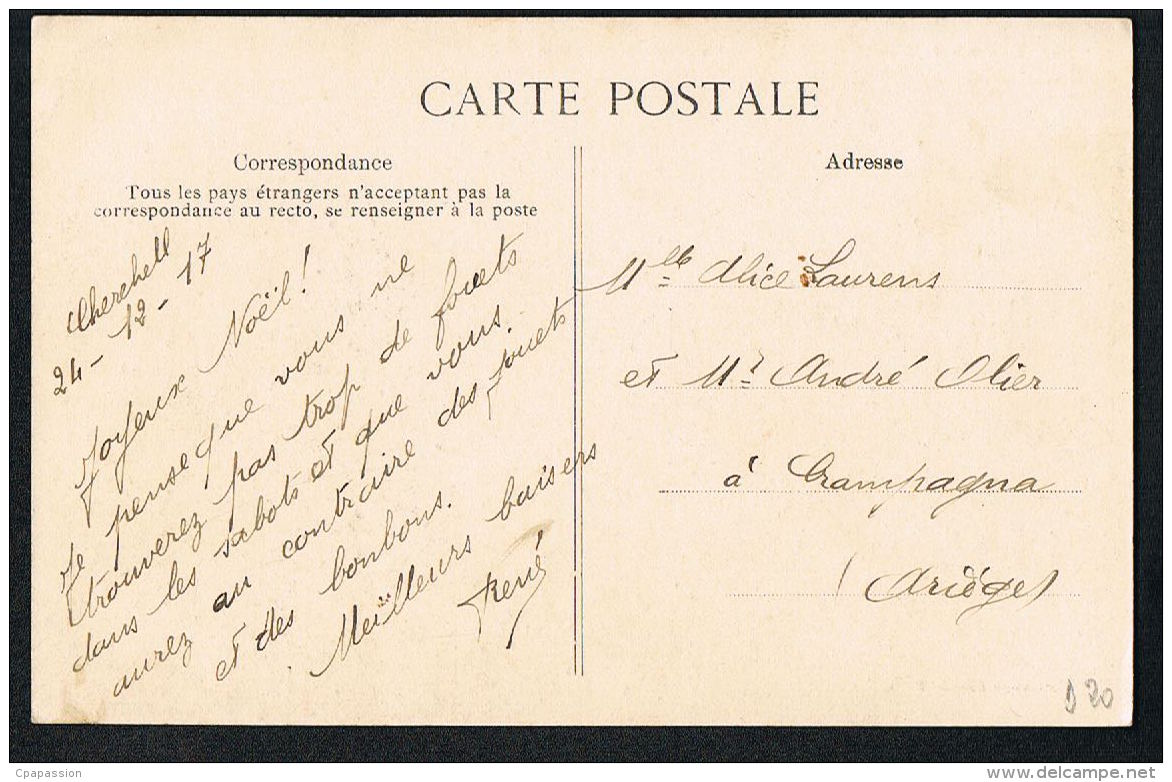 CARTE POSTALE
Correspondance
Tous les pays étrangers n'acceptant pas la
correspondance au recto, se renseigner à la poste
Cherchell
24-12-17
Joyeux Noël!
Je pense que vous ne
trouverez pas trop de fouets
dans les sabots et que vous
aurez au contraire des jouets
et des bonbons.
Meilleurs baisers
René
Adresse
Mlle Alice Laurens
et Mr André Olier
à Crampagna
(Ariège)
D 20
Cpapassion
www.delcampe.net